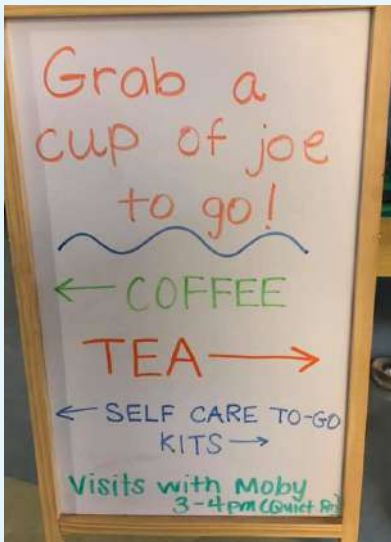 Grab a
cup of joe
to go!
← COFFEE
TEA →
← SELF CARE TO-GO
KITS →
Visits with Moby
3-4pm (Quiet Rm)